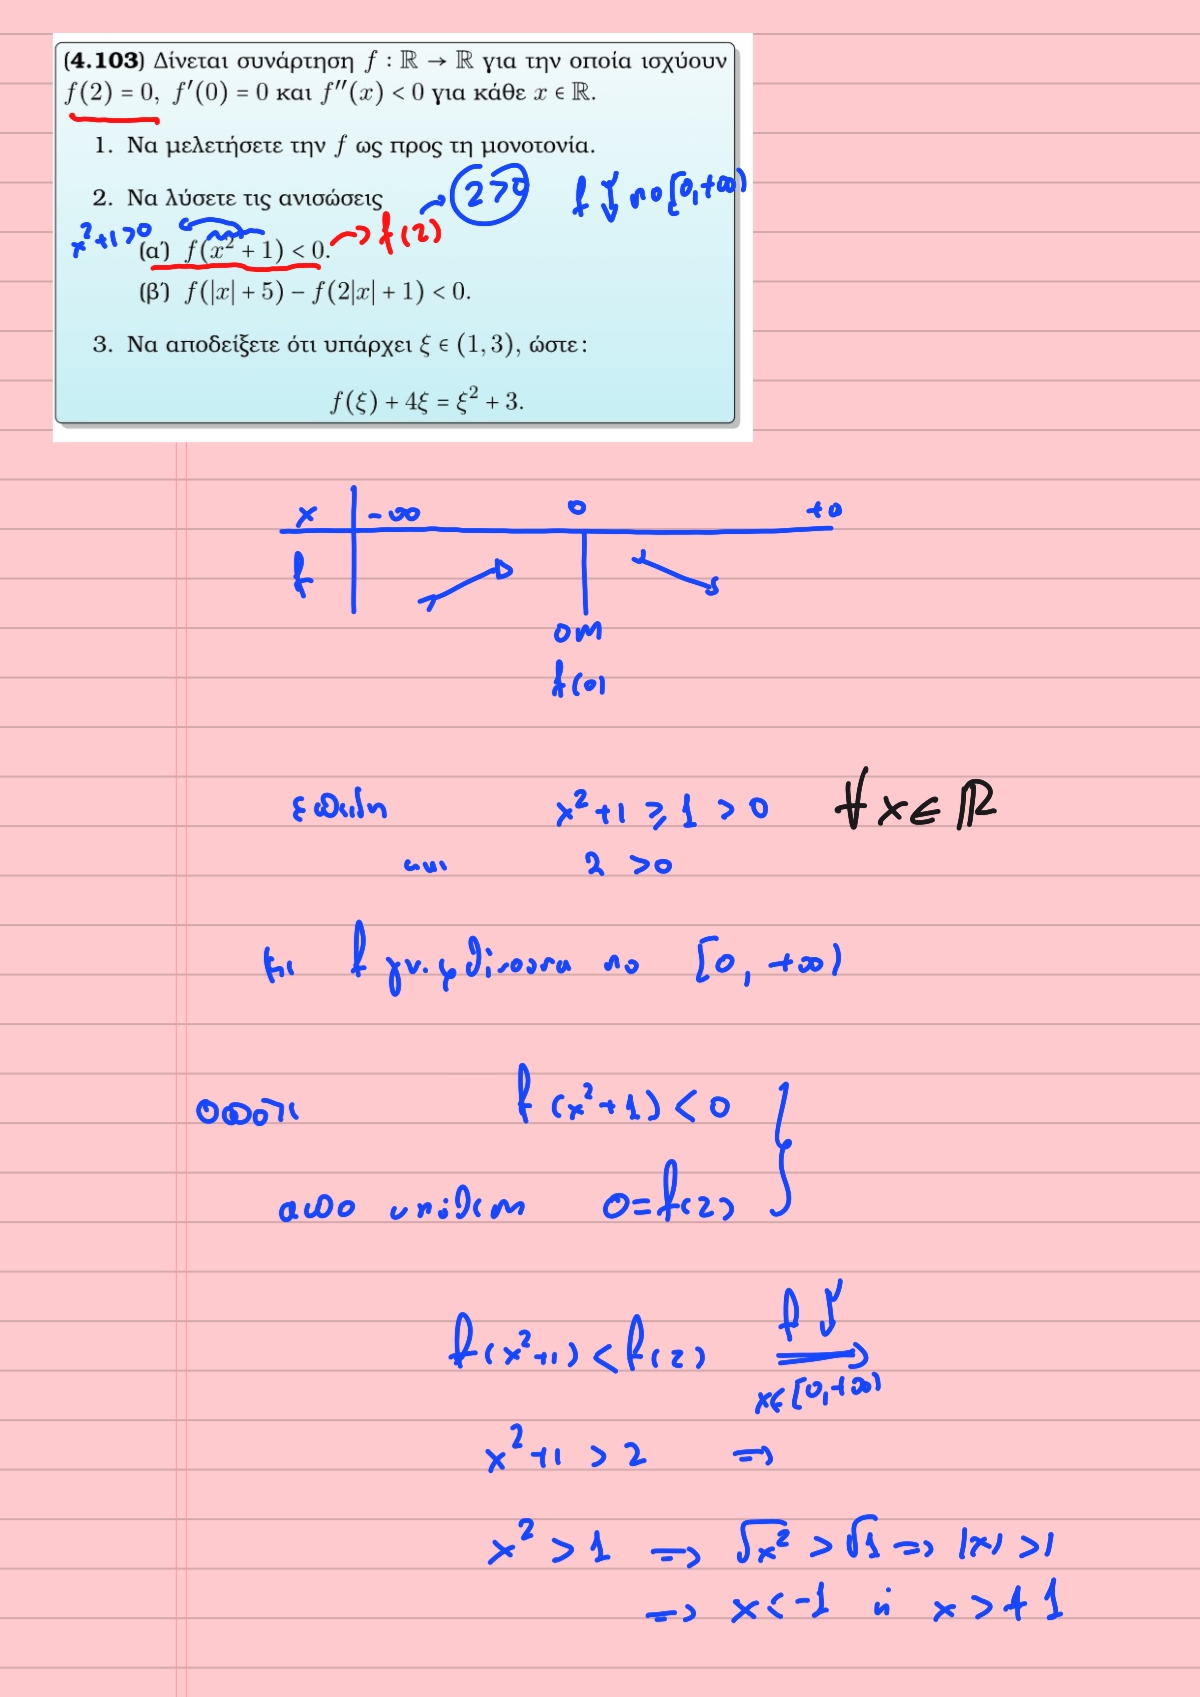 (4.103) Δίνεται συνάρτηση f : ℝ → ℝ για την οποία ισχύουν
f(2) = 0, f′(0) = 0 και f″(x) < 0 για κάθε x ∈ ℝ.
1. Να μελετήσετε την f ως προς τη μονοτονία.
2. Να λύσετε τις ανισώσεις
2>0
f ↓ το [0,+∞)
x²+1>0
(α΄) f(x² + 1) < 0.
→ f(2)
(β΄) f(|x| + 5) − f(2|x| + 1) < 0.
3. Να αποδείξετε ότι υπάρχει ξ ∈ (1, 3), ώστε:
f(ξ) + 4ξ = ξ² + 3.
x -∞ 0 +∞
f
ΟΜ
f(0)
επειδη x²+1 ≥ 1 > 0 ∀ x ∈ ℝ
και 2 >0
κι f γν. φθίνουσα το [0, +∞)
οποτε f(x²+1) < 0
απο υποθεση 0=f(2)
f(x²+1) < f(2) f ↓ ⟹ x∈[0,+∞)
x²+1 > 2 ⟹
x² > 1 ⟹ √x² > √1 ⟹ |x| > 1
⟹ x < -1 ή x > +1